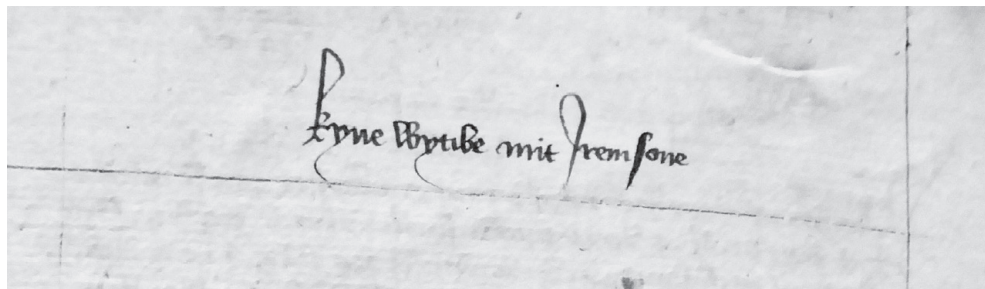 kyne Wytibe mit Jrem sone